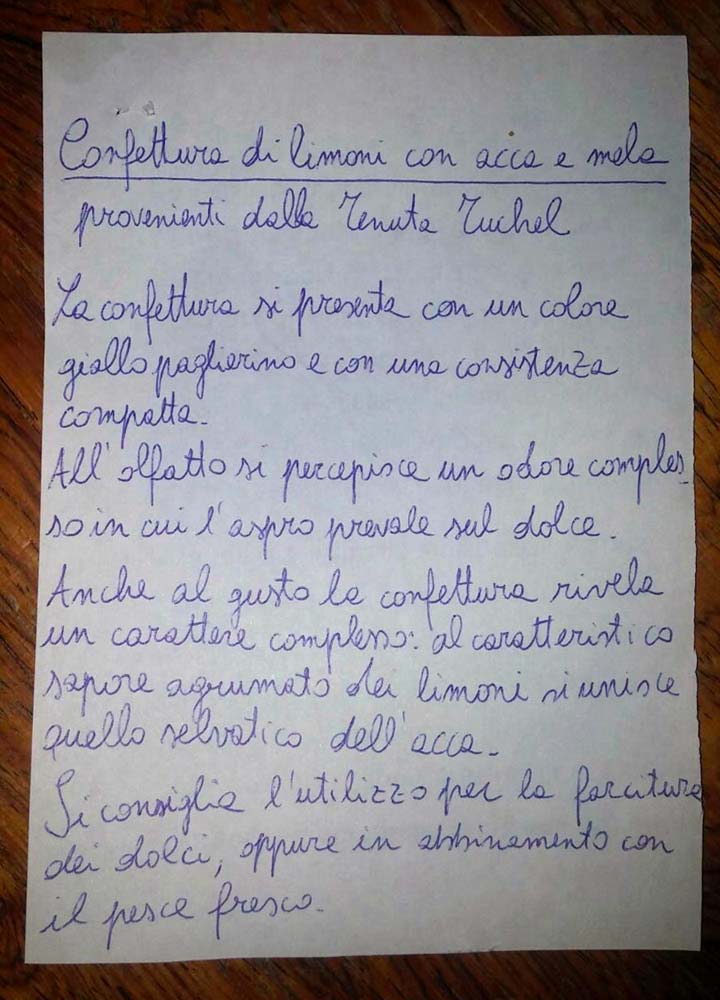 Confettura di limoni con acca e mela
provenienti dalla Tenuta Tuchel
La confettura si presenta con un colore
giallo paglierino e con una consistenza
compatta.
All'olfatto si percepisce un odore comples_
so in cui l'aspro prevale sul dolce.
Anche al gusto la confettura rivela
un carattere complesso: al caratteristico
sapore agrumato dei limoni si unisce
quello selvatico dell'acca.
Si consiglia l'utilizzo per la farcitura
dei dolci, oppure in abbinamento con
il pesce fresco.